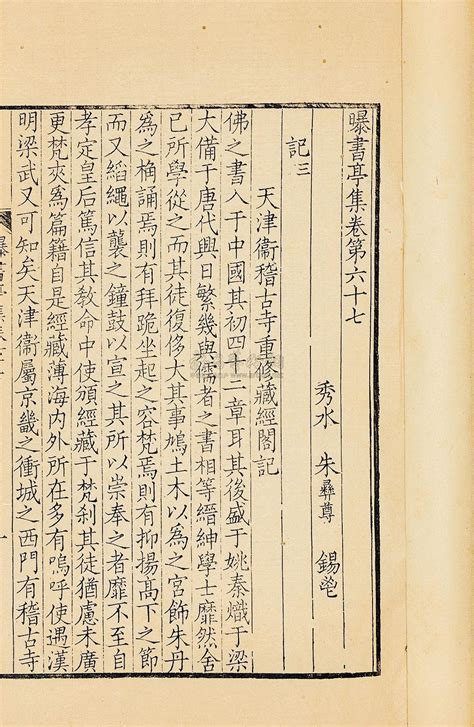 曝書亭集卷第六十七
秀水 朱彝尊 錫鬯
記三
天津衞稽古寺重修藏經閣記
佛之書入于中國其初四十二章耳其後盛于姚秦熾于梁
大備于唐代興日繁幾與儒者之書相等縉紳學士靡然舍
已所學從之而其徒復侈大其事鳩土木以為之宮飾朱丹
為之桷誦焉則有拜跪坐起之容梵焉則有抑揚高下之節
而又縚繩以襲之鐘鼓以宣之其所以崇奉之者靡不至自
孝定皇后篤信其教命中使頒經藏于梵刹其徒猶慮未廣
更梵夾為篇籍自是經藏薄海內外所在多有嗚呼使遇漢
明梁武又可知矣天津衞屬京畿之衝城之西門有稽古寺